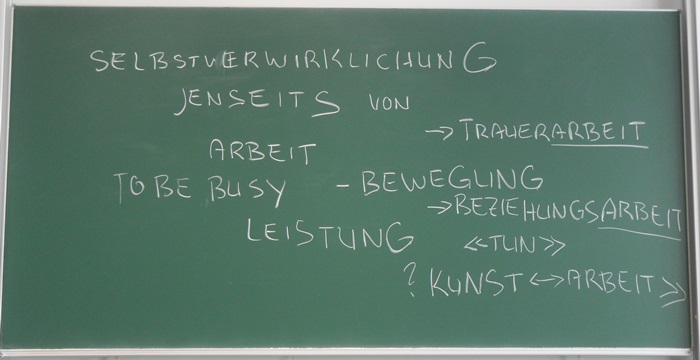 SELBSTVERWIRKLICHUNG
JENSEITS VON
→ TRAUERARBEIT
ARBEIT
TO BE BUSY – BEWEGUNG
→ BEZIEHUNGSARBEIT
LEISTUNG
<<TUN>>
? KUNST ↔ ARBEIT >>